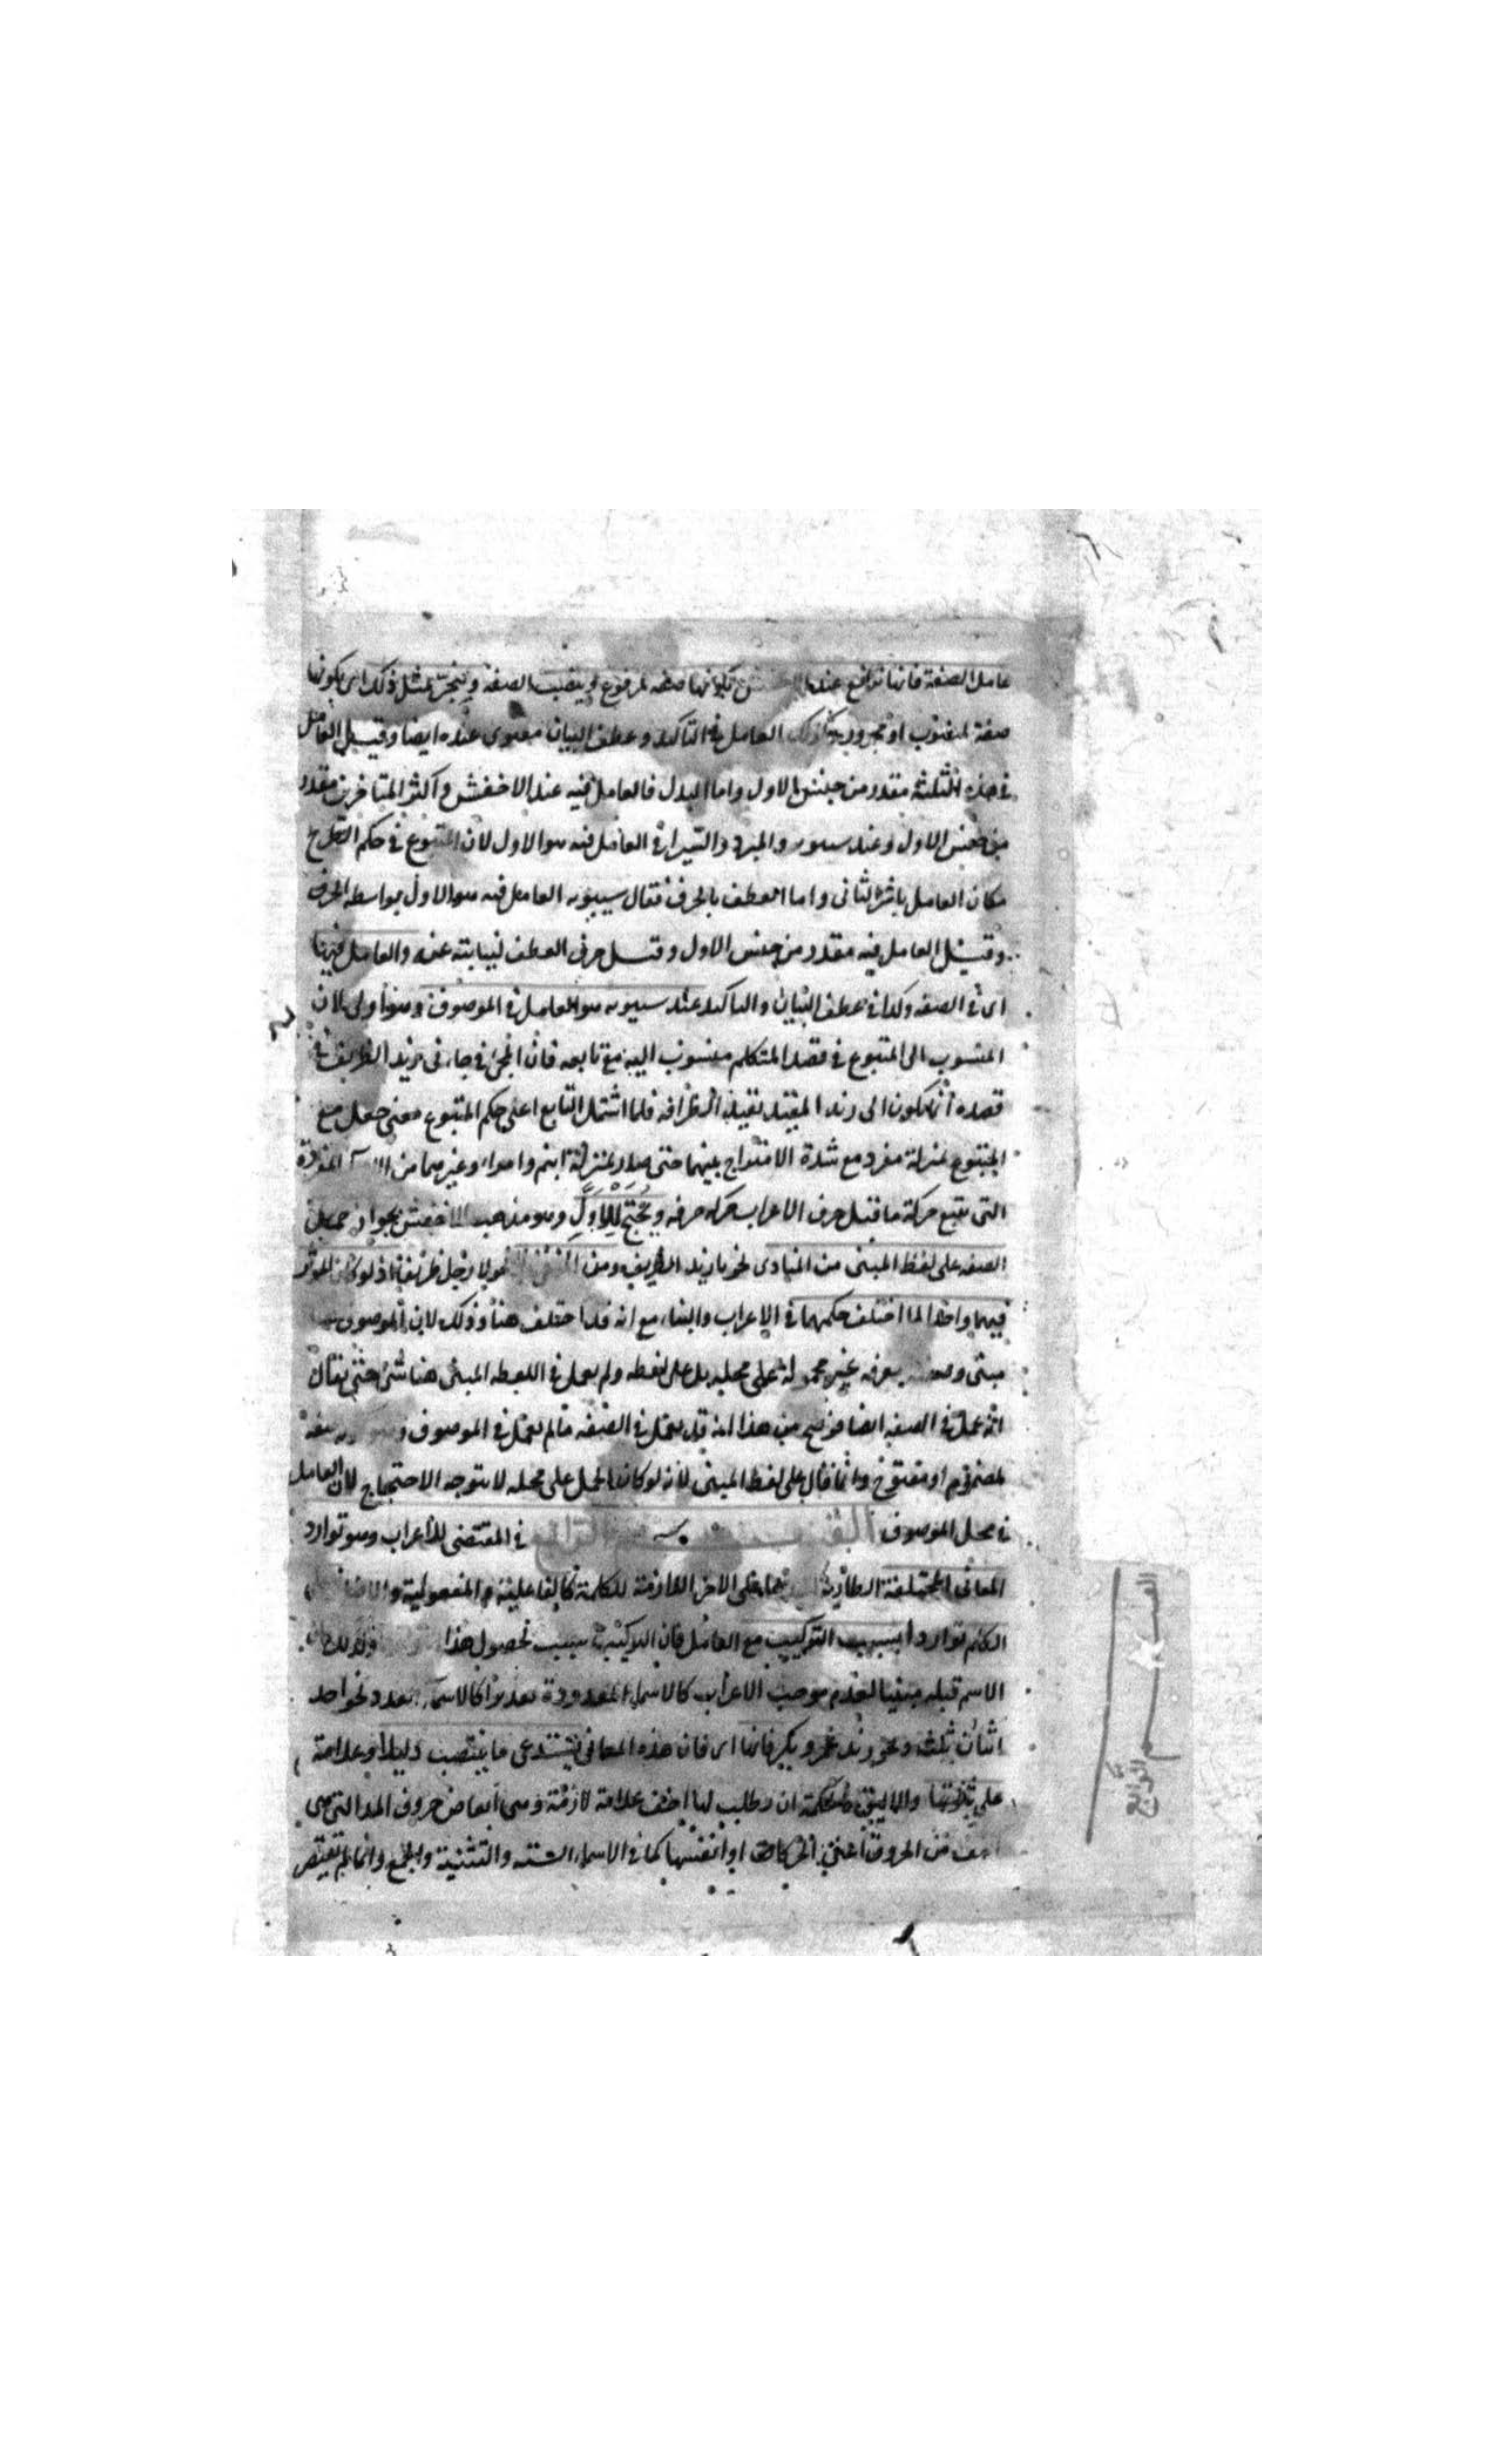 عامل الصفة فانها ترتفع عند الاخفش بكونها صفة لمرفوع وينتصب الصفة وينجر بمثل ذلك اى بكونها
صفة لمنصوب او مجرور وكذلك العامل فى التاكيد وعطف البيان معنوى عنده ايضا وقيل العامل
فى هذه الثلثة مقدر من جنس الاول واما البدل فالعامل فيه عند الاخفش واكثر المتاخرين مقدر
من جنس الاول وعند سيبويه والمبرد والسيرافى العامل فيه هو الاول لان المتبوع فى حكم الطرح
فكان العامل باشر الثانى واما العطف بالحرف فقال سيبويه العامل فيه هو الاول بواسطة الحرف
وقيل العامل فيه مقدر من جنس الاول وقيل حرف العطف لنيابته عنه والعامل فيها
اى فى الصفة وكذا فى عطف البيان والتاكيد عند سيبويه هو العامل فى الموصوف وهو اولى لان
المنسوب الى المتبوع فى قصد المتكلم منسوب اليه مع تابعه فان المجئ فى جاءنى زيد الظريف فى
قصده انما يكون الى زيد المقيد بقيد الظرافة فلما اشتمل التابع على حكم المتبوع معنى جعل مع
المتبوع بمنزلة مفرد مع شدة الامتزاج بينهما حتى صار بمنزلة ابنم وامرا وغيرهما من المفردة
التى تتبع حركة ما قبل حرف الاعراب حركة حرفه ويحتج للاول وهو مذهب الاخفش بجواز حمل
الصفة على لفظ المبنى من المنادى نحو يا زيد الظريف ومن المنفى نحو لا رجل ظريفا اذ لو كان المؤثر
فيهما واحدا لما اختلف حكمهما فى الاعراب والبناء مع انه قد اختلف هنا وذلك لان الموصوف
مبنى معربة غير محمولة على محله بل على لفظه ولم يعمل فى اللفظ المبنى هنا شئ حتى يقال
انه عمل فى الصفة ايضا فوضح من هذا انه قد يعمل فى الصفة ما لم يعمل فى الموصوف
لمضموم او مفتوح وانما قال على لفظ المبنى لانه لو كان الحمل على محله لا يتوجه الاحتجاج لان العامل
فى محل الموصوف الرابع فى المقتضى للاعراب وهو توارد
المعانى المختلفة الطارية على الاخر اللازمة للكلمة كالفاعلية والمفعولية والاضافة
الكلم تواردا بسبب التركيب مع العامل فان التركيب سبب لحصول هذا
الاسم قبله مبنيا لعدم موجب الاعراب كالاسماء المعدودة تعديدا كالاسماء العدد نحو واحد
اثنان ثلث ونحو زيد عمرو بكر فانها اى فان هذه المعانى تستدعى ما ينتصب دليلا وعلامة
على ثبوتها والاليق بالحكمة ان يطلب لها اخف علامة لازمة وهى ابعاض حروف المد التى هى
اخف من الحروف اعنى الحركات او انفسها كما فى الاسماء الستة والتثنية والجمع وانما لم تقتصر
الرابع